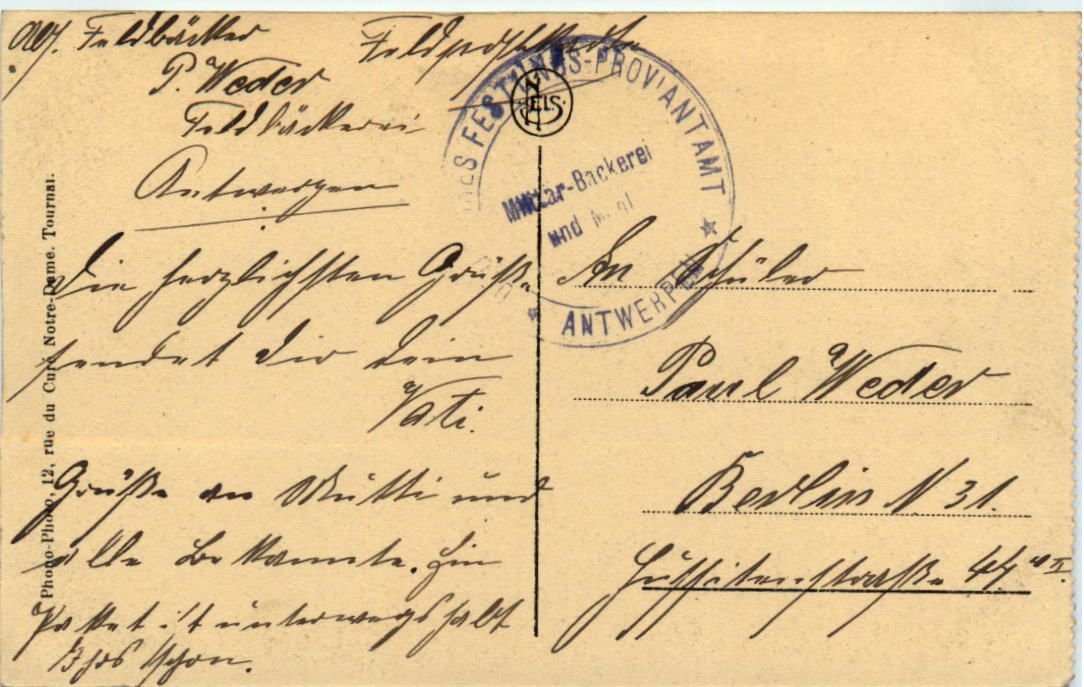 Abs. Feldbäcker
P. Weder
Feldbäckerei
Antwerpen
Feldpostkarte
NELS
FESTUNGS-PROVIANTAMT
Militär-Bäckerei
und
★ ANTWERPEN ★
Die herzlichsten Grüße
sendet Dir Dein
Vati.
Grüße an Mutti und
alle Bekannte. Ein
Paket ist unterwegs habt
Ihrs schon.
An Schüler
Paul Weder
Berlin N 31.
Hussitenstraße 44 II.
Phono-Photo, 12, rue du Curé Notre-Dame. Tournai.